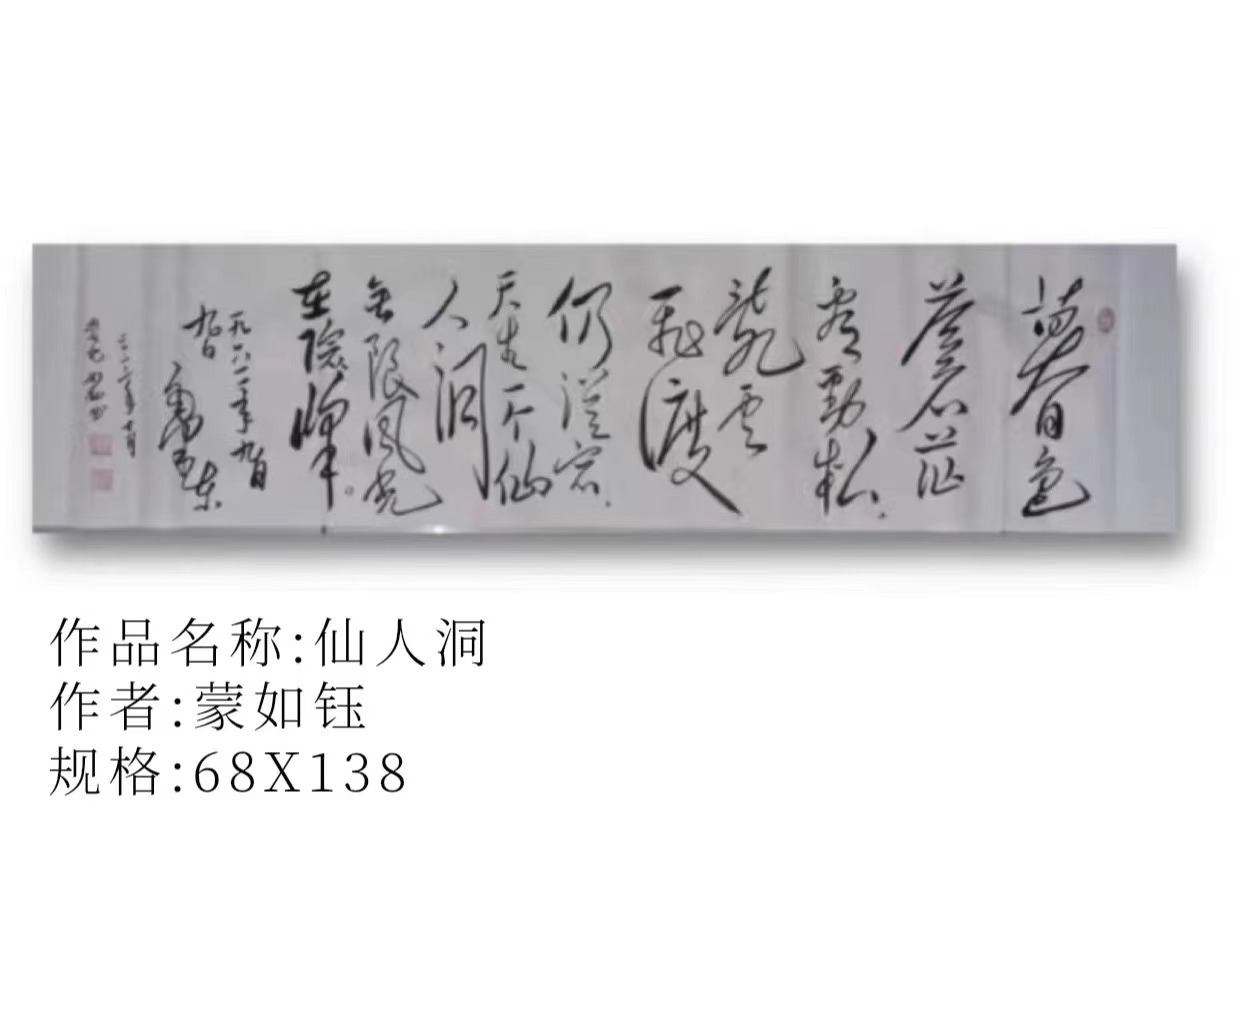 暮色
蒼茫
看勁松、
亂雲
飛渡
仍從容、
天生一个仙
人洞
无限風光
在險峰。
一九六一年九月
九日
毛澤东
作品名称:仙人洞
作者:蒙如钰
规格:68X138